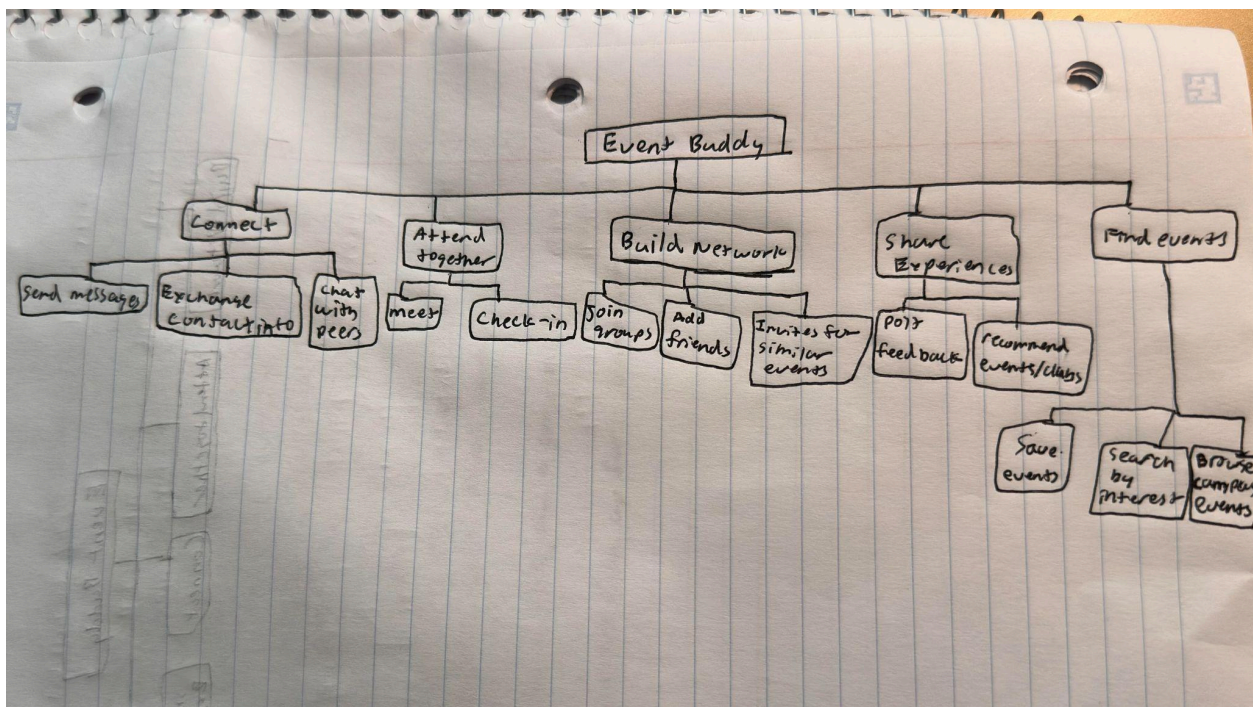 Event Buddy
Connect
Attend
together
Build Network
Share
Experiences
Find events
Send messages
Exchange
contact info
Chat
with
peers
meet
Check-in
Join
groups
Add
friends
Invites for
similar
events
Post
feedback
recommend
events/clubs
Save
events
Search
by
interest
Browse
campus
events